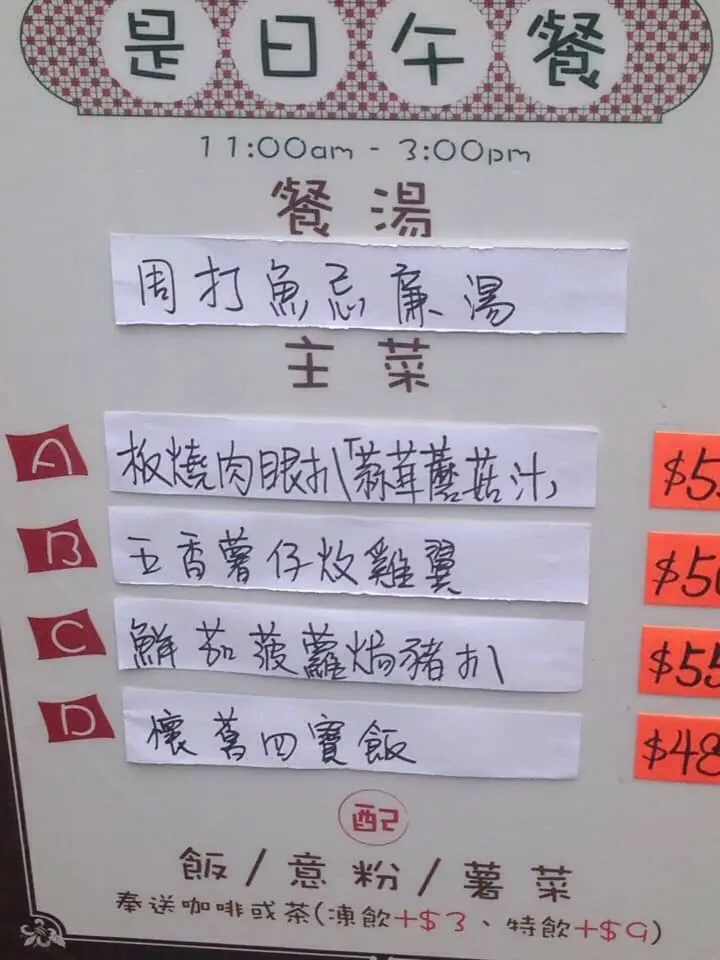 是日午餐
11:00am - 3:00pm
餐湯
周打魚忌廉湯
主菜
A 板燒肉眼扒「蒜茸蘑菇汁」 $5
B 五香薯仔炆雞翼 $50
C 鮮茄菠蘿焗豬扒 $55
D 懷舊四寶飯 $48
配
飯/意粉/薯菜
奉送咖啡或茶(凍飲+$3、特飲+$9)